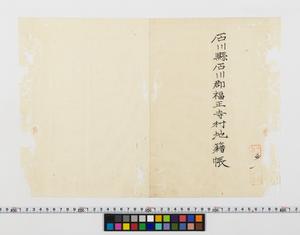 石川縣石川郡福正寺村地籍帳